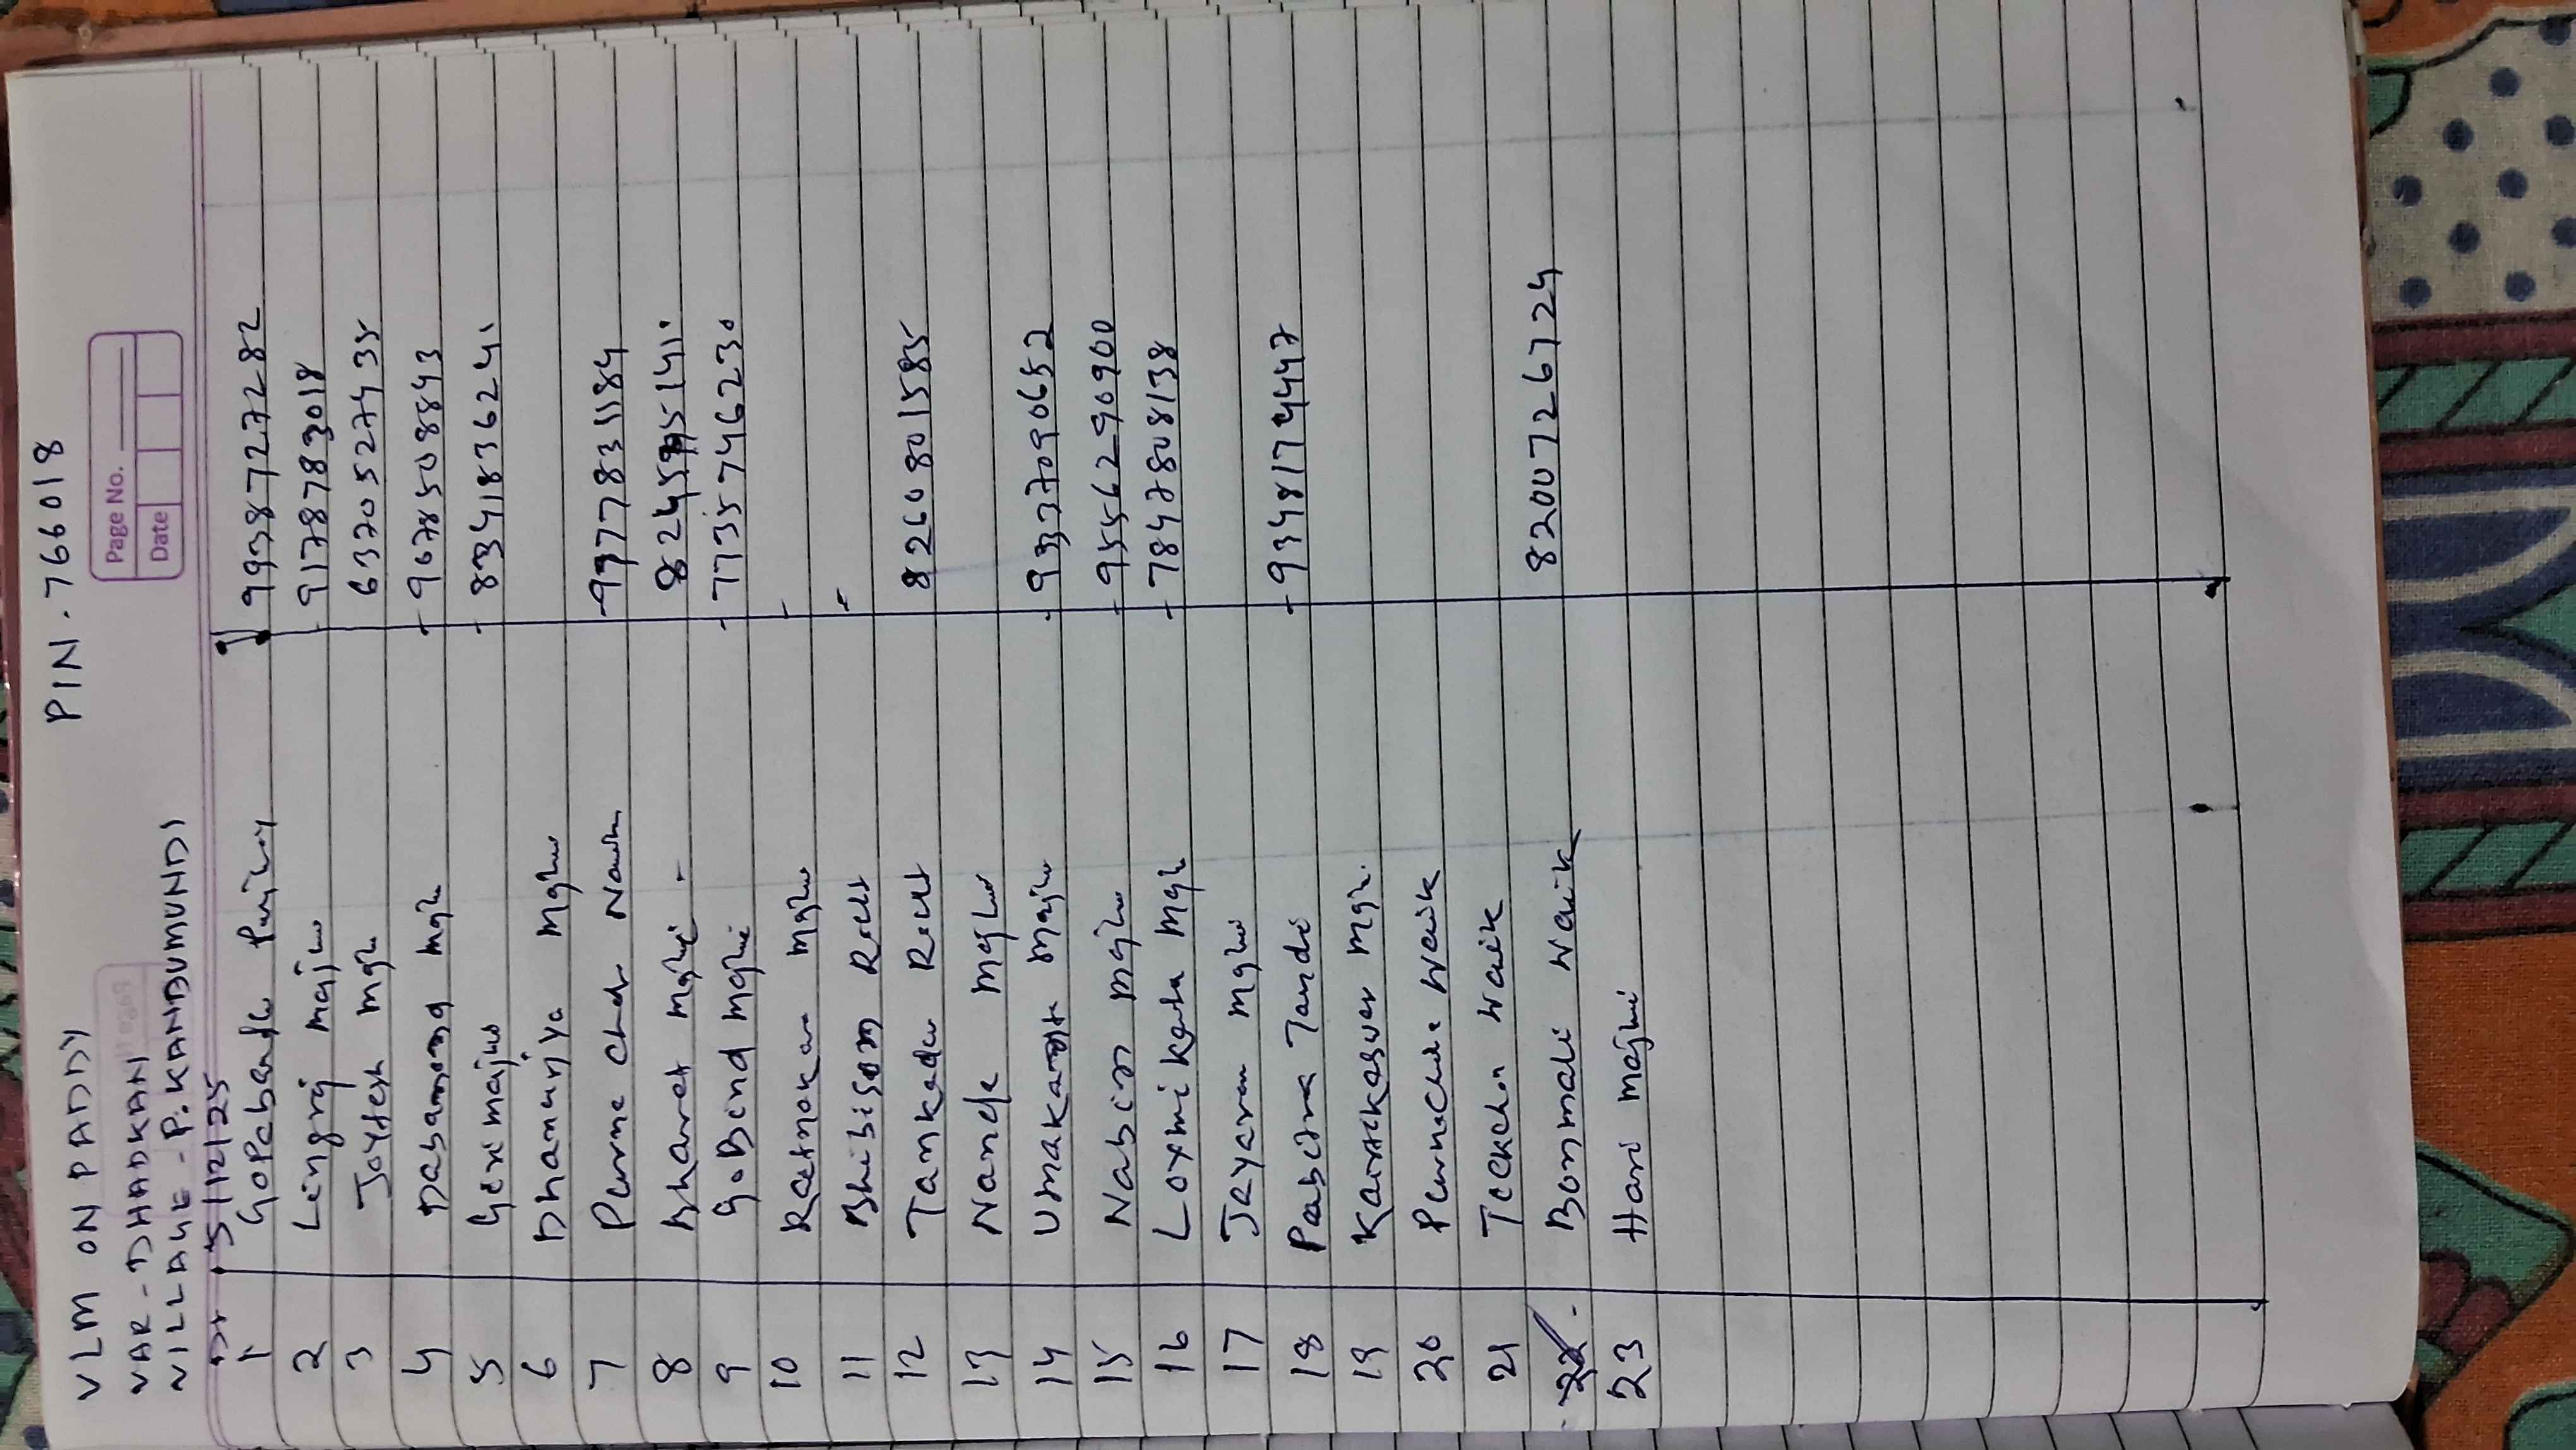 VLM ON PADDY PIN. 766018
VAR - DHADKAN
VILLAGE - P. KANDUMUNDI
Page No.
Date
DT. 5/12/25
1 Gopabandhu Pujhari 9938727282
2 Lingraj majhi 9178783018
3 Joytesh majhi 6370527435
4 Dasamana majhi 9678508843
5 Goni majhi 8341836241
6 Dhanurjya majhi
7 Purna Chdr Naik 9777831184
8 Bharat majhi
9 GoBind majhi 7735746230
10 majhi
11 Bhibisan Rout
12 Tankadar Rout 8260801585
13 Nanda majhi
14 Umakanta majhi 9337090652
15 Nabin majhi 9556290900
16 Loxmikanta majhi 7847808138
17 Jayaram majhi
18 Pabitra Tandi 9348174447
19 Kartikeswar majhi
20 Purnachdr Naik
21 Naik
22 Bonmali Naik 8200726724
23 Hari majhi